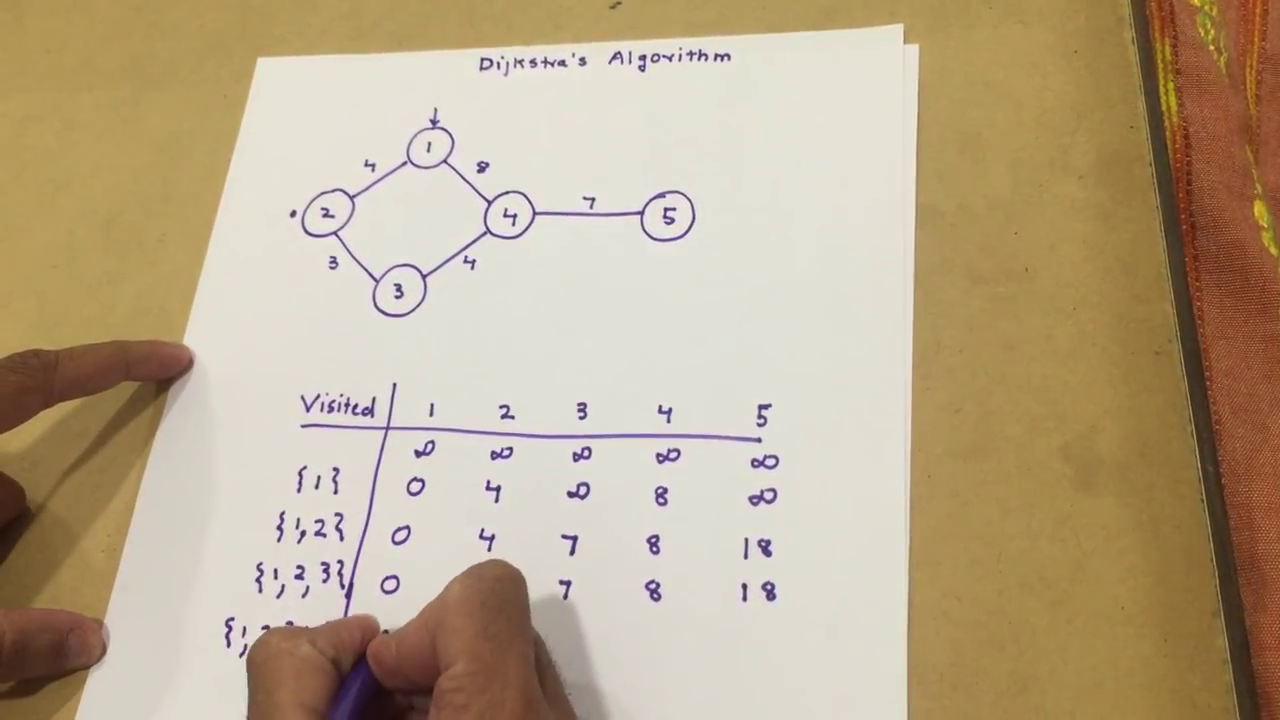 Dijkstra's Algorithm
1
4 8
2 4 7 5
3 4
3
Visited 1 2 3 4 5
∞ ∞ ∞ ∞ ∞
{1} 0 4 ∞ 8 ∞
{1,2} 0 4 7 8 18
{1,2,3} 0 7 8 18
{1,